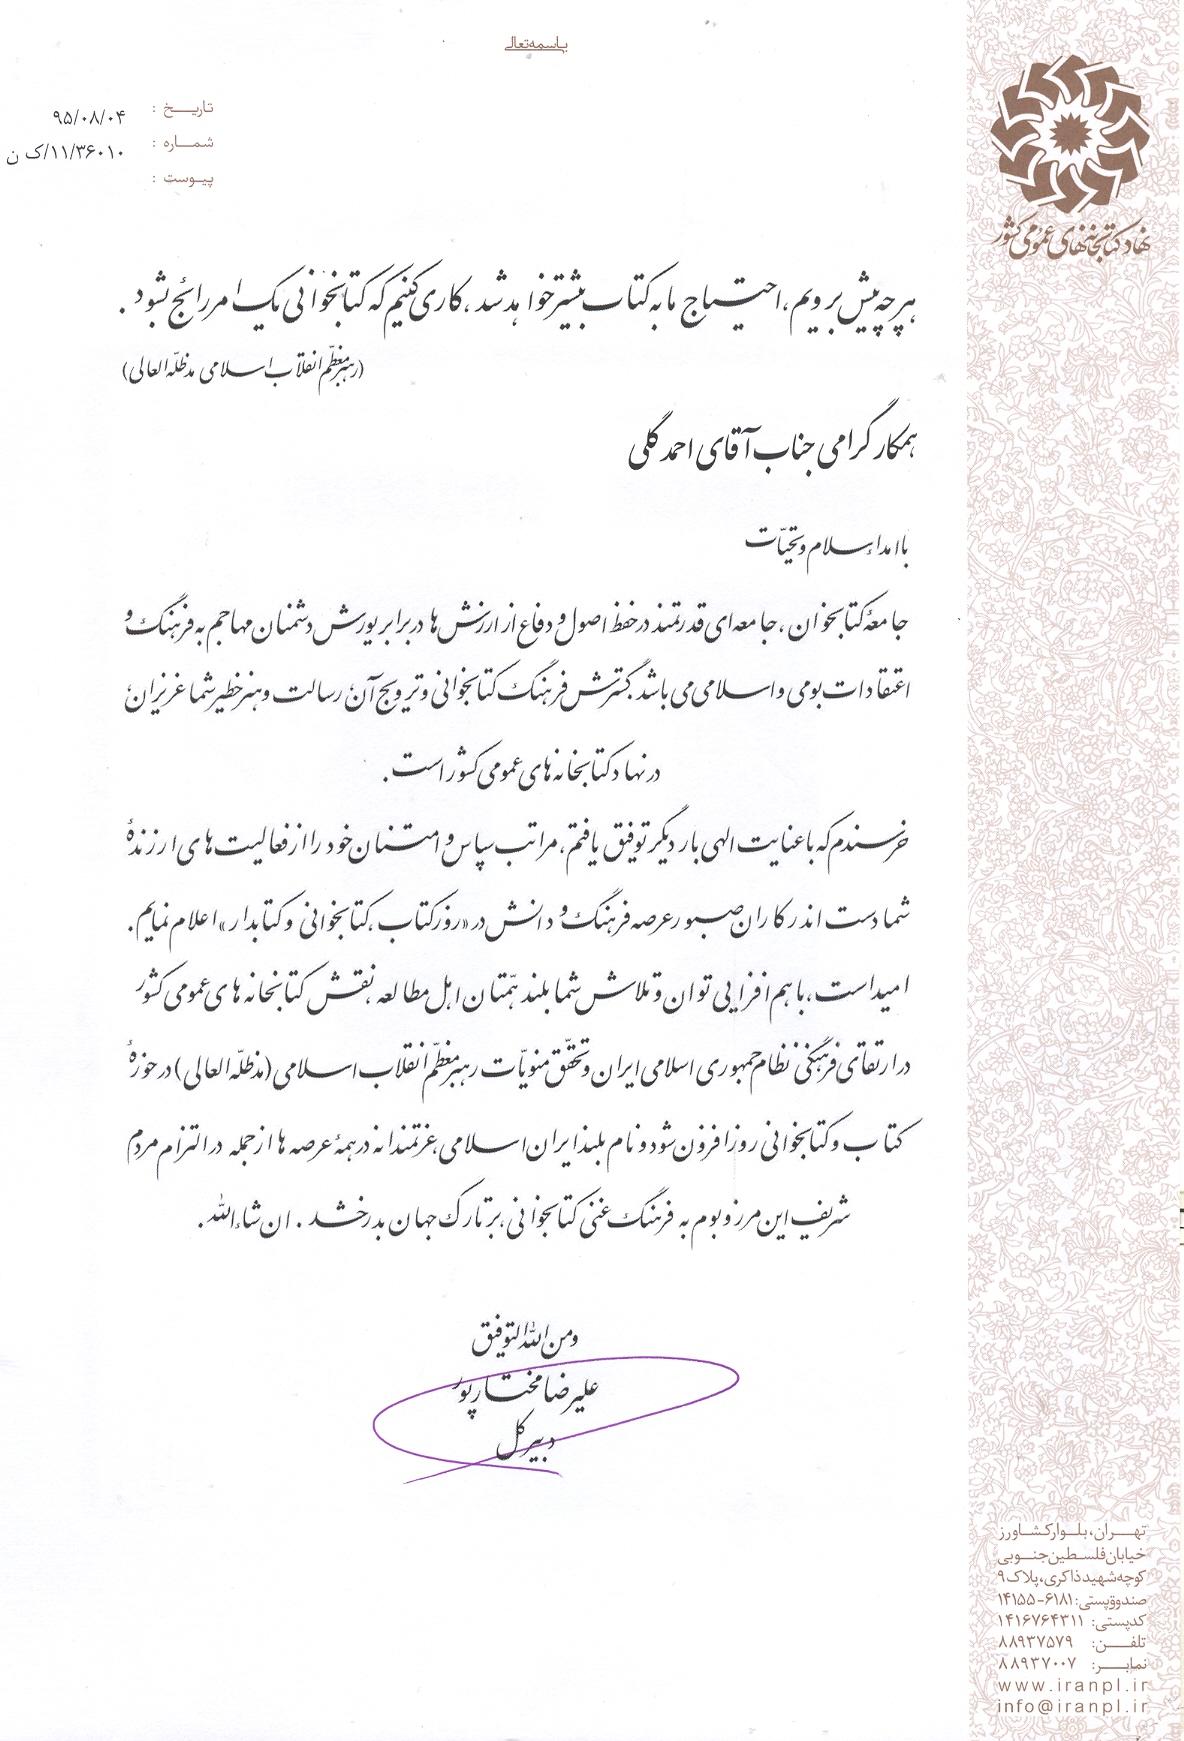 باسمه‌تعالی
تاریخ : ۹۵/۰۸/۰۴
شماره : ۱۱/۳۶۰۱۰/ک ن
پیوست :
نهاد کتابخانه‌های عمومی کشور
هر چه پیش برویم، احتیاج ما به کتاب بیشتر خواهد شد، کاری کنیم که کتابخوانی یک امر رائج بشود.
(رهبر معظّم انقلاب اسلامی مدظلّه العالی)
همکار گرامی جناب آقای احمد گلی
با اهداء سلام و تحیّات
جامعهٔ کتابخوان، جامعه‌ای قدرتمند در حفظ اصول و دفاع از ارزش‌ها در برابر یورش دشمنان مهاجم به فرهنگ و
اعتقادات بومی و اسلامی می باشد. گسترش فرهنگ کتابخوانی و ترویج آن، رسالت و هنر خطیر شما عزیزان،
در نهاد کتابخانه های عمومی کشور است.
خرسندم که با عنایت الهی بار دیگر توفیق یافتم، مراتب سپاس و امتنان خود را از فعالیت های ارزندهٔ
شما دست اندرکاران صبور عرصه فرهنگ و دانش در «روز کتاب، کتابخوانی و کتابدار» اعلام نمایم.
امید است، با هم افزایی توان و تلاش شما بلند همّتان اهل مطالعه، نقش کتابخانه های عمومی کشور
در ارتقای فرهنگی نظام جمهوری اسلامی ایران و تحقّق منویّات رهبر معظّم انقلاب اسلامی (مدظلّه العالی) در حوزهٔ
کتاب و کتابخوانی روز افزون شود و نام بلند ایران اسلامی، عزتمندانه در همهٔ عرصه ها از جمله در التزام مردم
شریف این مرز و بوم به فرهنگ غنی کتابخوانی، بر تارک جهان بدرخشد. ان شاءالله.
و من الله التوفیق
علیرضا مختارپور
دبیر کل
تهران، بلوار کشاورز
خیابان فلسطین جنوبی
کوچه شهید ذاکری، پلاک ۹
صندوق پستی: ۶۱۸۱-۱۴۱۵۵
کدپستی: ۱۴۱۶۷۶۴۳۱۱
تلفن: ۸۸۹۳۷۵۷۹
نمابر: ۸۸۹۳۷۰۰۷
www.iranpl.ir
info@iranpl.ir